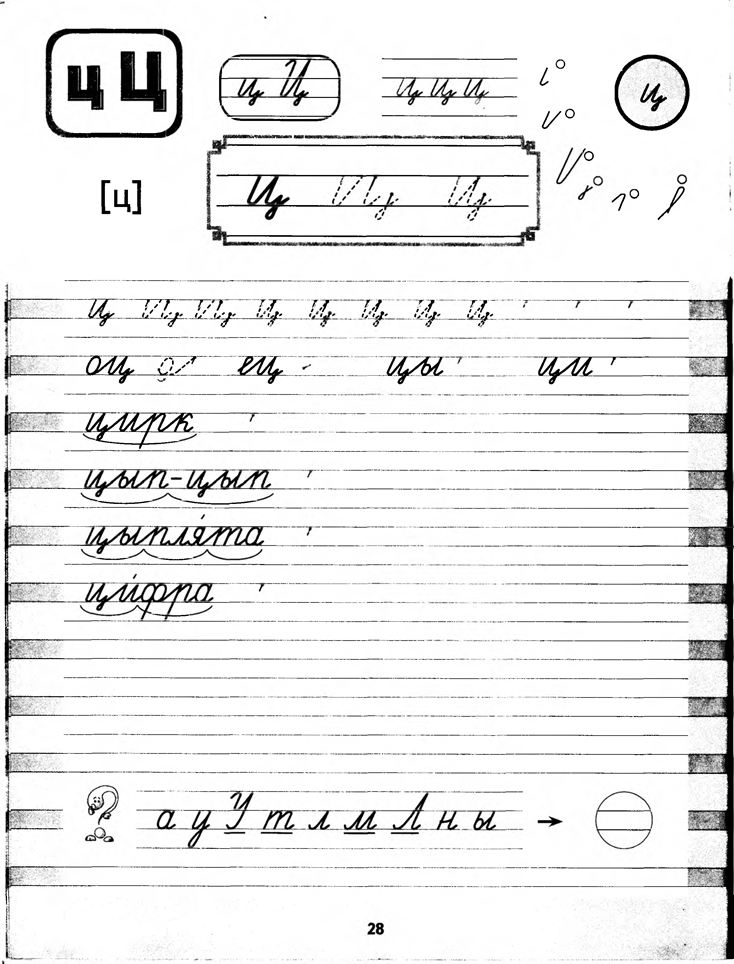 ц Ц
ц Ц
ц ц ц
ц
[ц]
ц ц ц
ц ц ц ц ц ц ц ц
оц ец цы ци
цирк
цып-цып
цыпля́та
ци́фра
а у У т л м Л н ы →
28